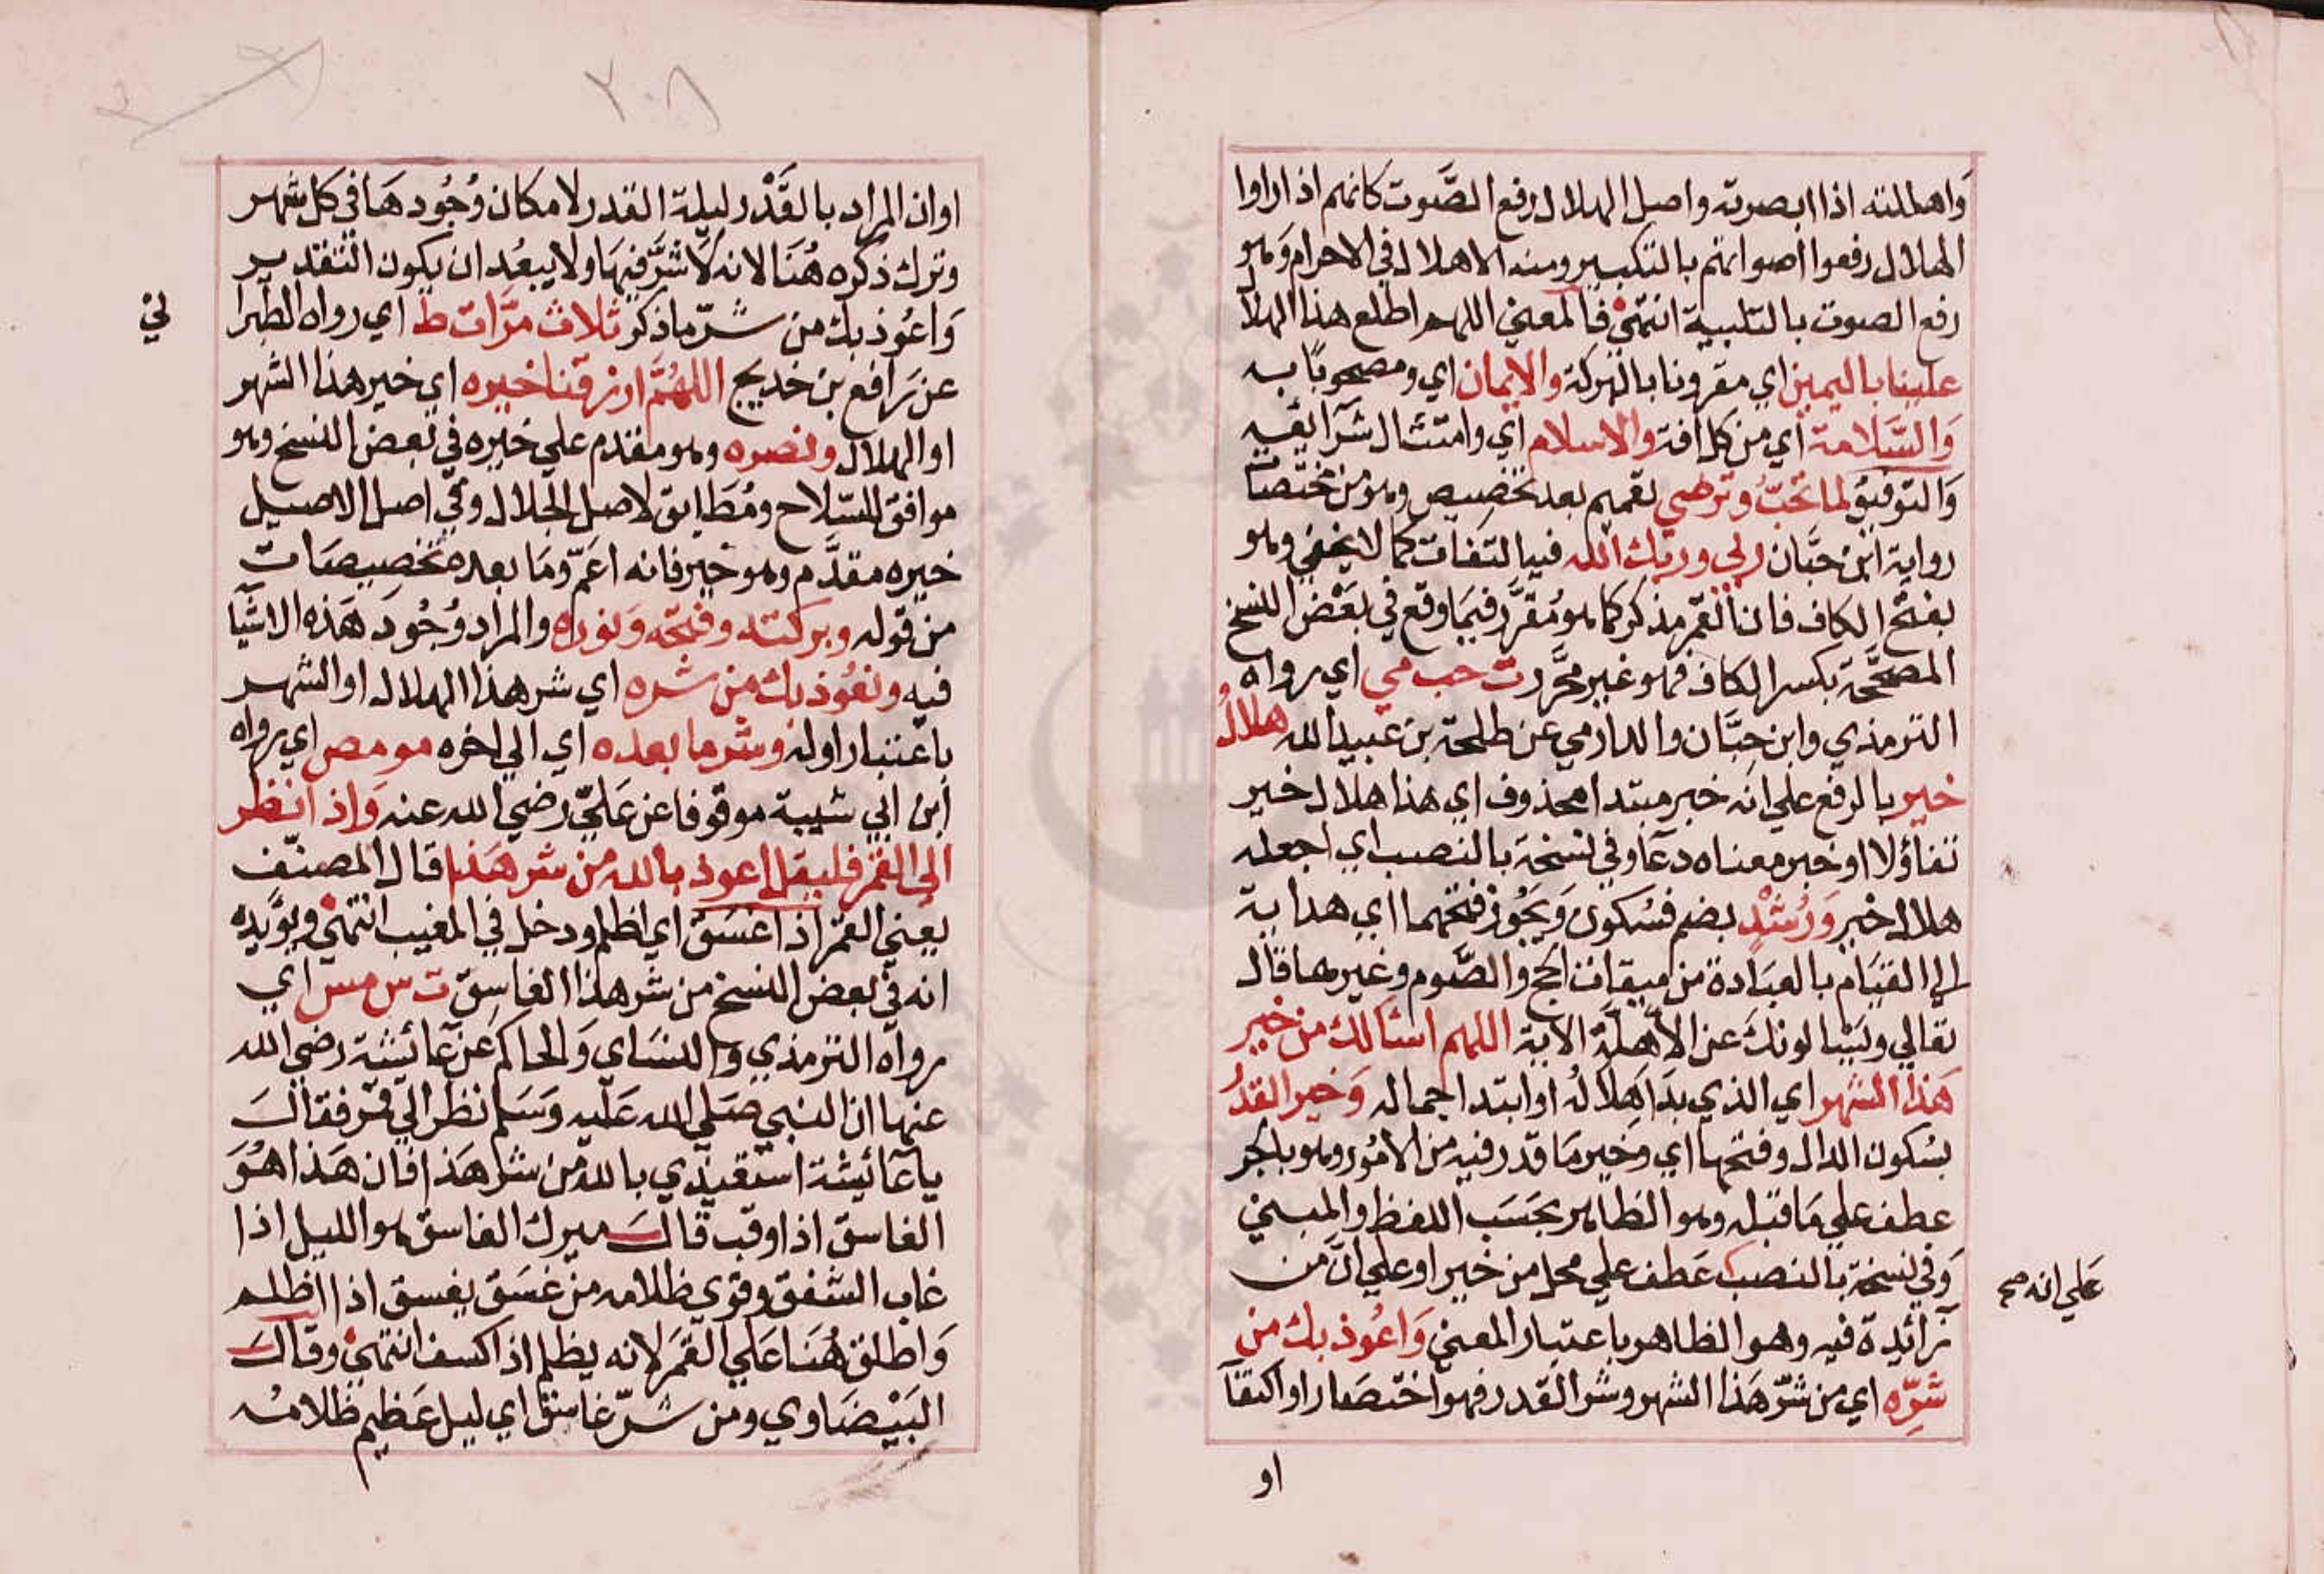 وَاهللته اذا ابصرته واصل الهلال رفع الصَّوت كانهم اذا راوا
الهلال رفعوا اصواتهم بالتكبير ومنه الاهلال في الاحرام وَهو
رفع الصوت بالتلبية انتهيٰ فالمعني اللهم اطلع هذا الهلال
علينا باليمين اي مقرونا بالبركة والايمان اي ومصحوبًا به
وَالسَّلامة اي من كل افة والاسلام اي وامتثال شرآئعه
وَالتوفيق لما تحبّ وترضي تعميم بعد تخصيص وهو من مختصات
رواية ابن حبَّان ربي وربك الله فيه التفات كما لا يخفي وهو
بفتح الكاف فان القمر مذكر كما هو مُقرَّر فيمَا وقع في بعْض النسخ
المصحَّحة بكسر الكاف فهو غير محَّرر ت حب مي اي رواه
الترمذي وابن حِبَّان والدارمي عن طلحة بن عبيد الله هلالُ
خير بالرفع علي انه خبر مبتدا محذوف اي هذا هلال خير
تفاؤلا او خبر معناه دعآ وفي نسخة بالنصب اي اجعله
هلال خير وَرُشْدٍ بضم فسُكون وَيجُوز فتحهما اي هداية
الي القيَام بالعبَادة من ميقات الحج والصَّوم وغيرهما قال
تعالي ويَسْالونكَ عن الاَهلّة الاية اللهم اسْالك من خير
هَذا الشهر اي الذي بدَا هِلالُه او ابتدا جماله وَخير القدرُ
بسُكون الدال وفتحها اي وخير مَا قدر فيه من الامُور وهو بالجر
عطف علي مَا قبله وهو الظاهر بحَسَب اللفظ والمبني
وَفي نسخة بالنصب عَطف علي محل من خير او علي انّ من
زآئدة فيه وهو الظاهر باعتبار المعني وَاعُوذ بك من
شرّه اي من شرّ هَذا الشهر وشر القدر فهو اختصَار او اكتفآ
علي انه صح
او
٢٠٨
او ان المراد بالقَدْر ليلة القدر لامكان وُجُودهَا في كل شهر
وترك ذكره هُنَا لانه لا شرَّ فيهَا ولا يبعُد ان يكون التقدير
وَاعُوذ بك من شرّ ما ذكر ثلاث مرّات ط اي رواه الطبرا
ني
عن رَافع بن خديج اللهُمَّ ارزقنا خيره اي خير هذا الشهر
او الهلال ونصره وهو مقدم علي خيره في بعض النسخ وهو
موافق للسّلاح ومُطَابق لاصل الجلال وفي اصل الاصيل
خيره مقدَّم وهو خير فانه اعَمّ ومَا بعده تخصيصَات
من قوله وبركته وفتحَه وَنوره والمراد وُجُودَ هَذه الاشيآ
فيه ونعُوذ بك من شره اي شر هذا الهلال او الشهر
باعتبار اوله وشر ما بعده اي الي اخره مو مص اي رواه
ابن ابي شيبة موقوفا عن عَليّ رضي الله عنه وَاذا نظر
الي القمر فليقل اعوذ بالله من شر هَذا قال المصنّف
يعني القمر اذا غسَقَ اي اظلم ودخل في المغيب انتهيٰ ويؤيّده
انه في بعض النسخ من شر هذا الغاسِق ت س مس اي
رواه الترمذي والنسَاي وَالحاكم عن عآئشة رضي الله
عنها ان النبي صَلي الله عَليه وَسَلم نظر الي قمر فقالَ
يا عآئيشة استعيذي بالله من شر هَذا فان هَذا هُوَ
الغاسق اذا وقب قالَ ميرك الغاسق هو الليل اذا
غاب الشفق وقوي ظلامه من غسَق يغسق اذا اظلم
وَاطلق هُنَا عَلي القمَر لانه يظلم اذا كسف انتهيٰ وقالَ
البَيْضَاوي ومن شرّ غاسق اي ليل عَظيم ظلامُه